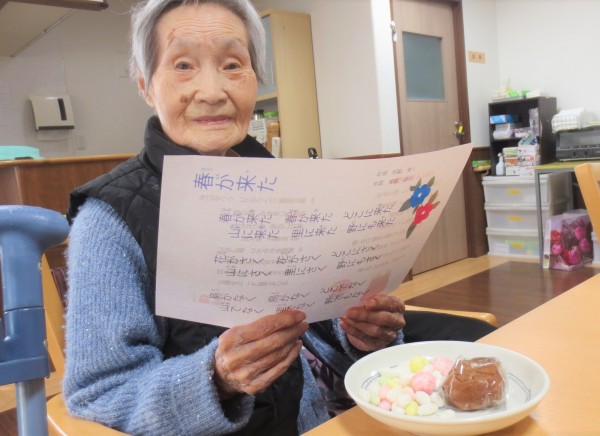 春が来た
春が来た 春が来た どこに来た
山に来た 里に来た 野にも来た
花がさく 花がさく どこにさく
山にさく 里にさく 野にもさく
鳥がなく 鳥がなく どこでなく
山でなく 里でなく 野でもなく